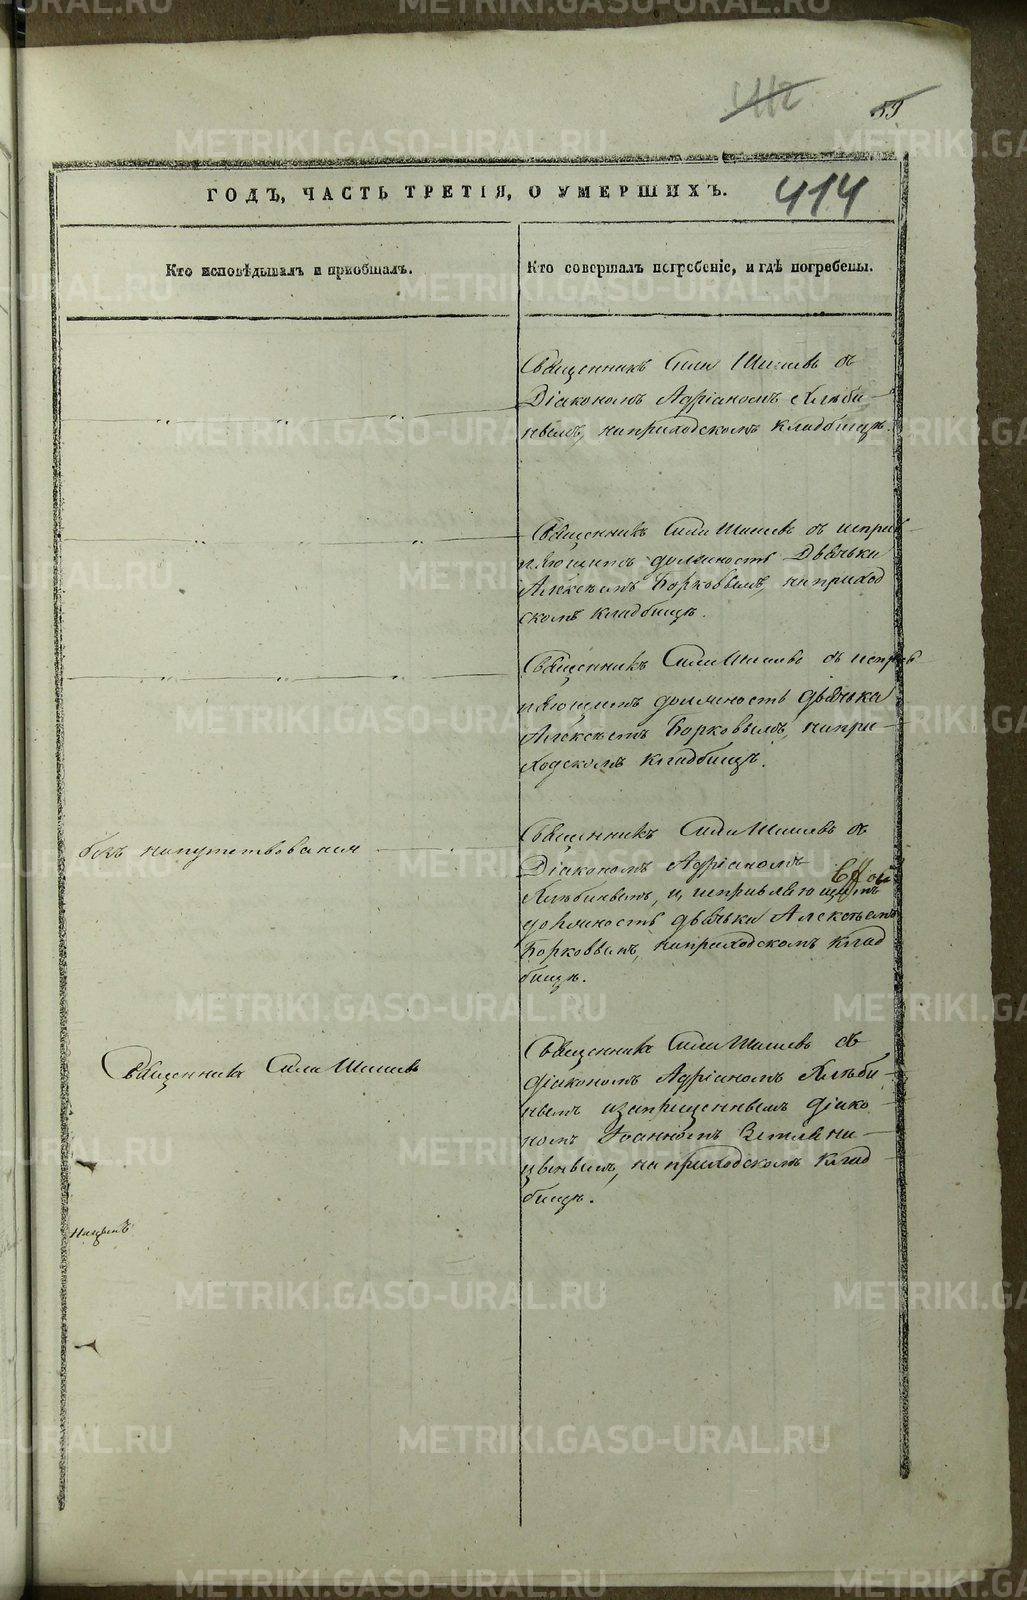 112
53
ГОДЪ, ЧАСТЬ ТРЕТІЯ, О УМЕРШИХЪ.
414
Кто исповѣдывалъ и пріобщалъ.
Кто совершалъ погребеніе, и гдѣ погребены.
Священникъ Сила Шишевъ съ
Діакономъ Адріаномъ Хлѣби-
нымъ, на приходскомъ кладбищѣ.
Священникъ Сила Шишевъ съ исправ
ляющимъ должность Дьячька
Алексѣемъ Борковымъ, на приход
скомъ кладбищѣ.
Священникъ Сила Шишевъ съ исправ
ляющимъ должность дьячька
Алексѣемъ Борковымъ, на при-
ходскомъ кладбищѣ.
безъ напутствованія
Священникъ Сила Шишевъ съ
Діакономъ Адріаномъ
Хлѣбинымъ, и исправляющимъ
должность дьячька Алексѣемъ
Борковымъ, на приходскомъ клад
бищѣ.
Священникъ Сила Шишевъ
Священникъ Сила Шишевъ съ
діакономъ Адріаномъ Хлѣби-
нымъ и запрещеннымъ діако
номъ Іоанномъ
на приходскомъ клад
бищѣ.
METRIKI.GASO-URAL.RU